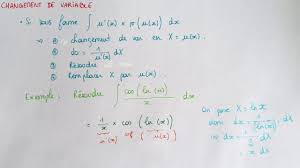 CHANGEMENT DE VARIABLE
• Si sous forme ∫ u'(x) × f(u(x)) dx
⇒ changement de var en X = u(x).
dx = 1/u'(x) dX
Résoudre
Remplacer X par u(x).
Exemple : Résoudre ∫ cos(ln(x))/x dx
= 1/x × cos(ln(x))
u'(x) u(x)
On pose X = ln x
dx = 1/ dX
dx = dX